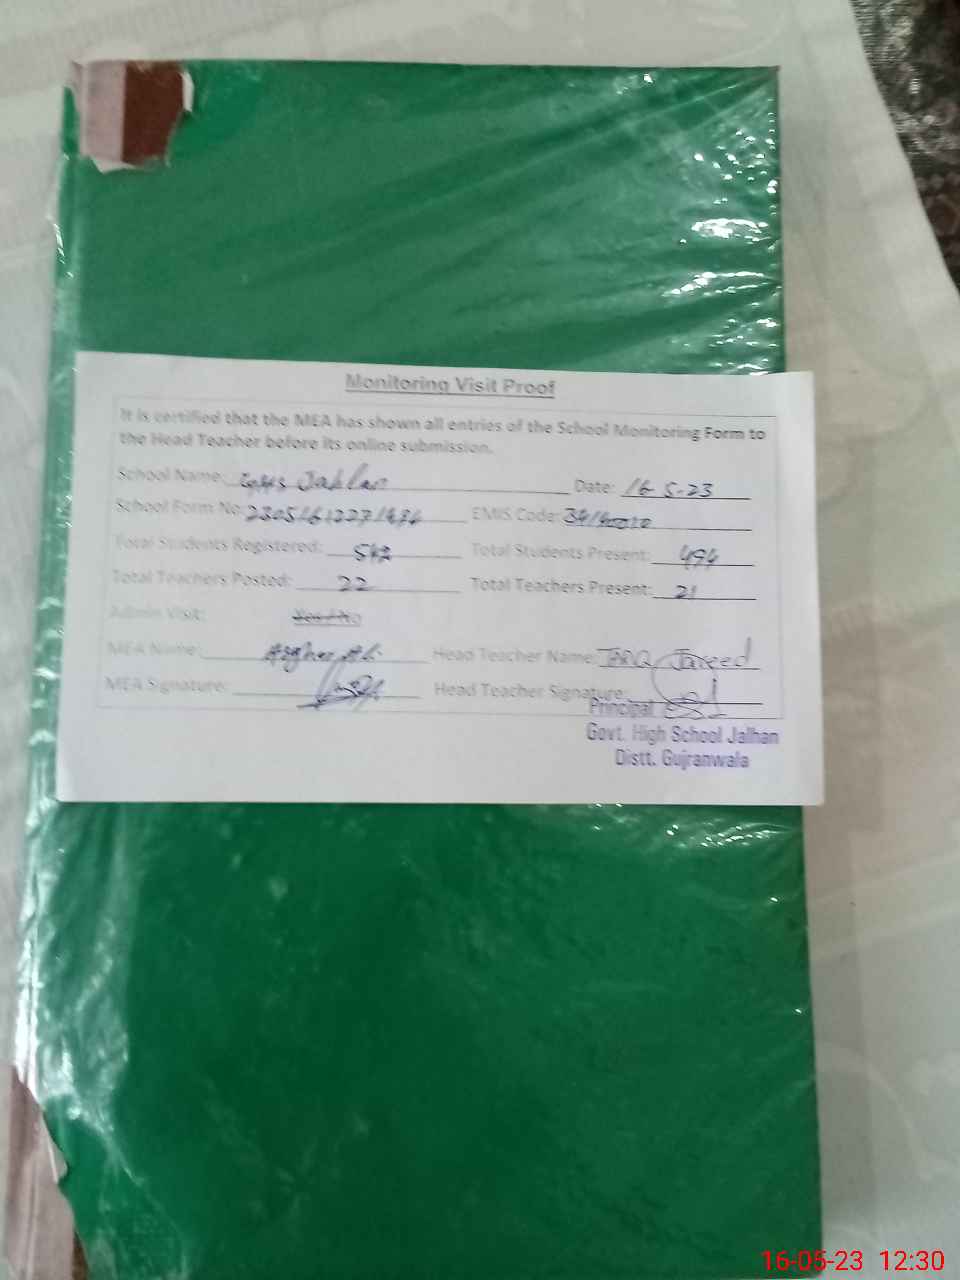 Monitoring Visit Proof
It is certified that the MEA has shown all entries of the School Monitoring Form to
the Head Teacher before its online submission.
School Name: GHS Jahlan Date: 16-5-23
School Form No: EMIS Code:
Total Students Registered: Total Students Present: 494
Total Teachers Posted: 22 Total Teachers Present: 21
Admin Visit: Yes / No
MEA Name: Asghar Ali Head Teacher Name: Tariq Javeed
MEA Signature: Head Teacher Signature:
Principal
Govt. High School Jalhan
Distt. Gujranwala
16-05-23 12:30